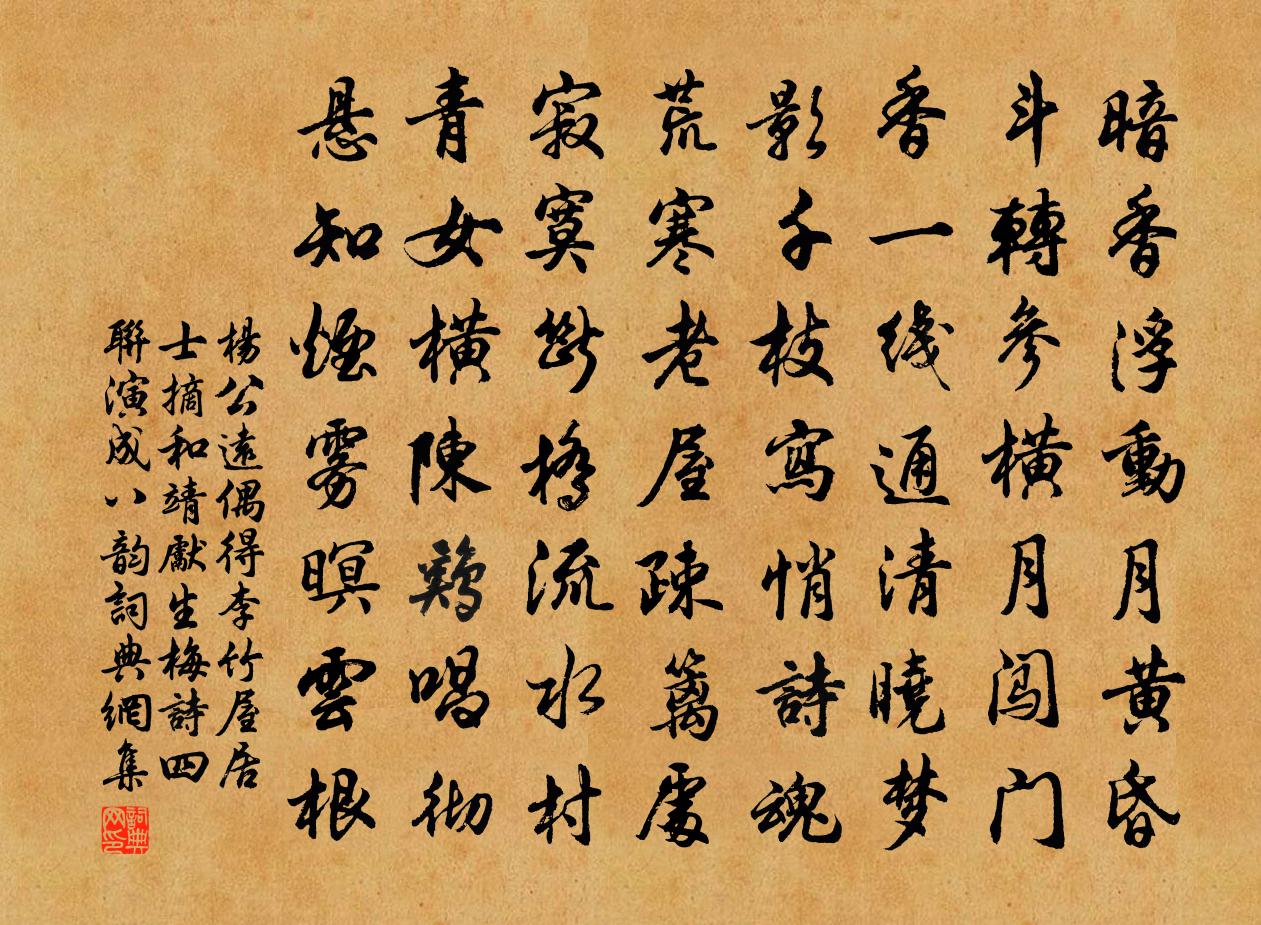 暗香浮動月黄昏
斗轉參横月闯门
香一线通清曉梦
影千枝寫悄詩魂
荒寒老屋疎篱處
寂寞斷橋流水村
青女横陳鷄唱彻
悬知煙雾暝雲根
楊公遠偶得李竹屋居
士摘和靖獻生梅詩四
聯演成八韵詞典網集
詞典网印